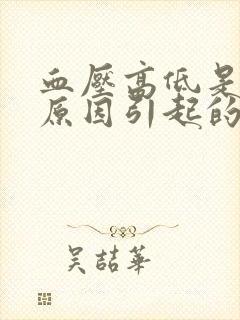 血壓高低是
原因引起的
吴喆華